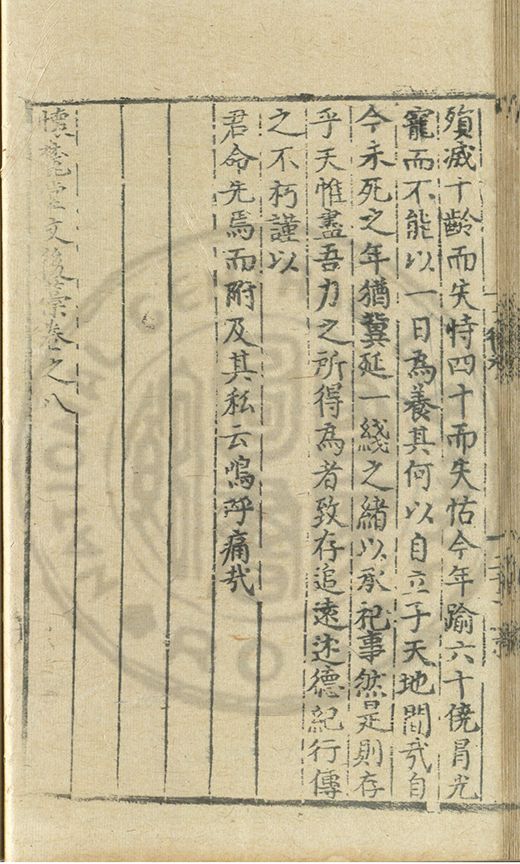 殞滅十齡而失恃四十而失怙今年踰六十僥冐光
寵而不能以一日為養其何以自立于天地間㢤自
今未死之年猶冀延一綫之緒以承祀事然是則存
乎天惟盡吾力之所得為者致存追遠述德紀行傳
之不朽謹以
君命先焉而附及其私云嗚呼痛㢤
懷麓堂文後藁卷之八